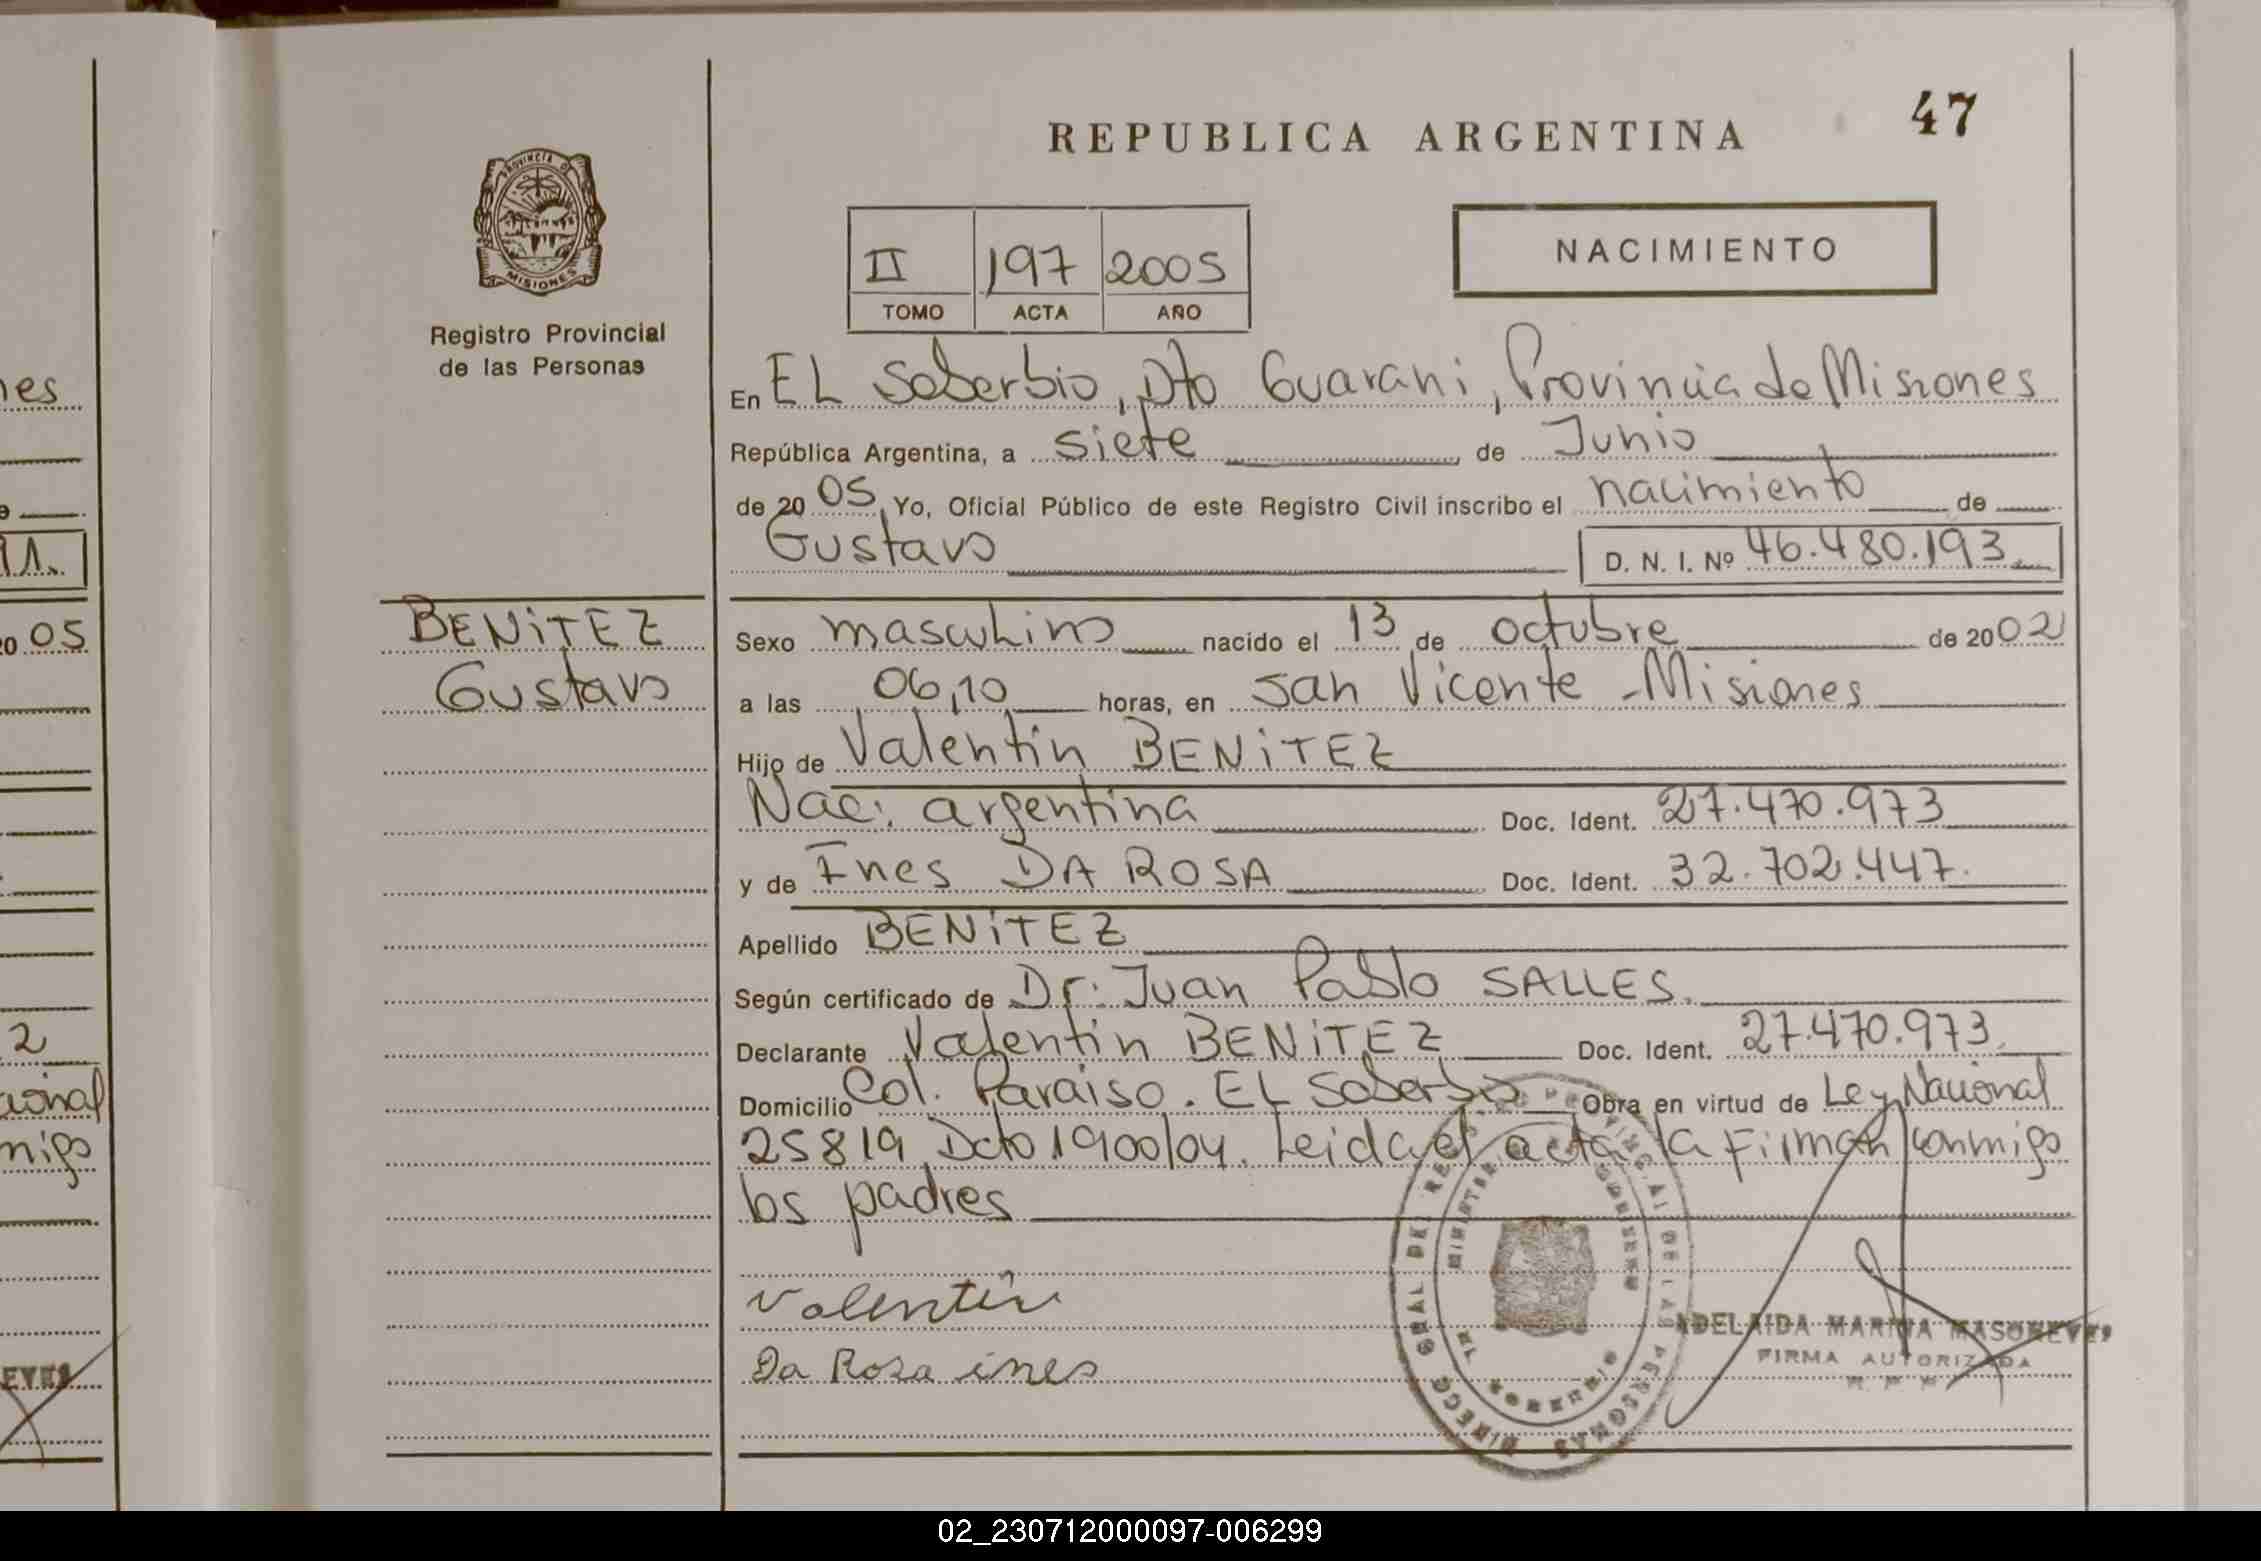 47
REPUBLICA ARGENTINA
PROVINCIA D
MISIONES
Registro Provincial
de las Personas
II 197 2005
TOMO ACTA AÑO
NACIMIENTO
En EL Soberbio, Dto Guarani, Provincia de Misiones
República Argentina, a siete de Junio
de 2005 Yo, Oficial Público de este Registro Civil inscribo el nacimiento de
Gustavo D. N. I. Nº 46.480.193
BENiTEZ
Gustavo
Sexo masculino nacido el 13 de octubre de 2002
a las 06,10 horas, en San Vicente - Misiones
Hijo de Valentín BENiTEZ
Nac: argentina Doc. Ident. 27.470.973
y de Ines DA ROSA Doc. Ident. 32.702.447.
Apellido BENiTEZ
Según certificado de Dr: Juan Pablo SALLES.
Declarante Valentín BENiTEZ Doc. Ident. 27.470.973.
Domicilio Col. Paraiso. EL Soberbio Obra en virtud de Ley Nacional
25819 Dcto 1900/04. Leida el acta la firman conmigo
los padres
Valentin
Da Rosa ines
DIRECC GRAL DEL REG PROVINCIAL DE LAS PERSONAS
MINISTERIO GOBIERNO
EL SOBERBIO
ADELAIDA MARINA MASONEVES
FIRMA AUTORIZADA
nes
11.
20 05
2
acional
migo
EVES
02_230712000097-006299